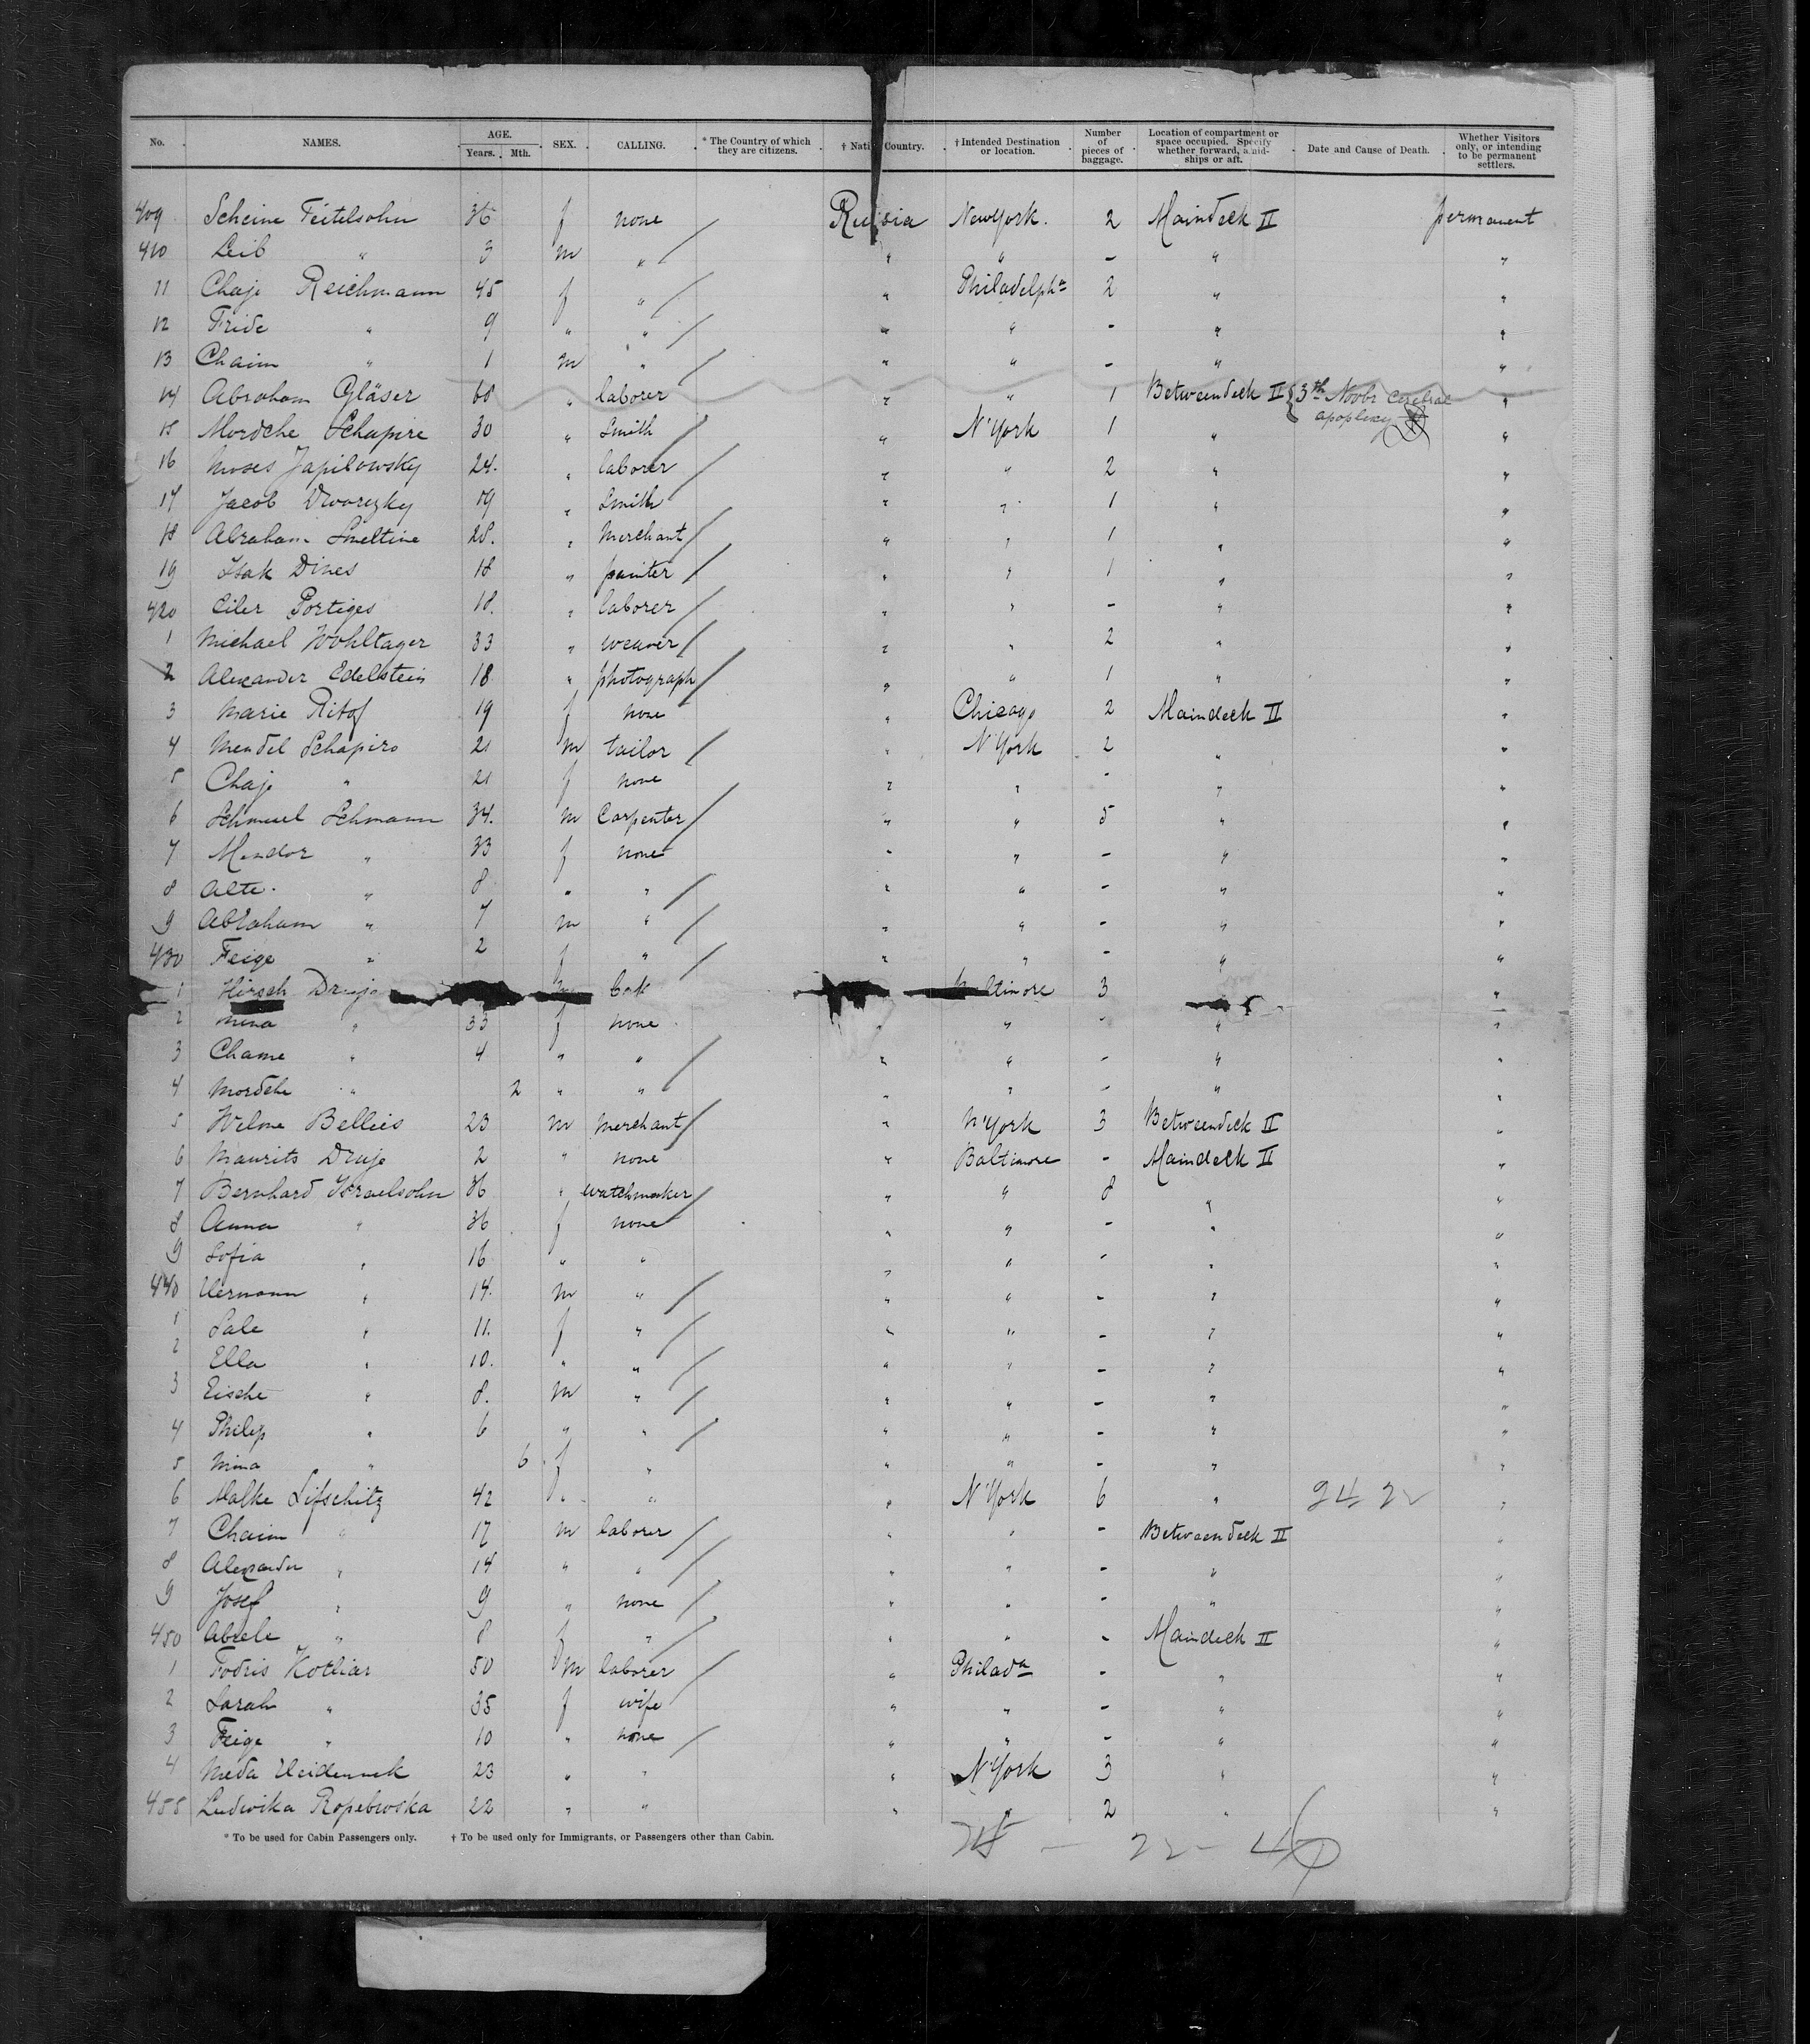 No. NAMES. AGE. Years. Mth. SEX. CALLING. * The Country of which they are citizens. † Nati Country. † Intended Destination or location. Number of pieces of baggage. Location of compartment or space occupied. Specify whether forward, amidships or aft. Date and Cause of Death. Whether Visitors only, or intending to be permanent settlers.
409 Scheine Feitelsohn 36 f none Russia NewYork. 2 Maindeck II permanent
410 Leib " 3 m " " " - " "
11 Chaje Reichmann 45 f " " Philadelpha 2 " "
12 Fride " 9 " " " " - " "
13 Chaim " 1 m " " " - " "
14 Abraham Gläser 60 " laborer " " 1 Betweendeck II 3th Novbr Cerebral apoplexy "
15 Mordche Schapire 30 " Smith " N'York 1 " "
16 Moses Japilowsky 24. " laborer " " 2 " "
17 Jacob Dworezky 19 " Smith " " 1 " "
18 Abraham Smeltine 28. " Merchant " " 1 " "
19 Isak Dines 18 " painter " " 1 " "
420 Eiler Portiges 18. " laborer " " - " "
1 Michael Wohltager 33 " weaver " " 2 " "
2 Alexander Edelstein 18 " photograph " " 1 " "
3 Marie Ritof 19 f none " Chicago 2 Maindeck II "
4 Mendel Schapiro 21 m tailor " N'York 2 " "
5 Chaje " 21 f none " " - " "
6 Schmuel Schmann 34. m Carpenter " " 5 " "
7 Mendor " 33 f none " " - " "
8 Alte. " 8 " " " " - " "
9 Abraham " 7 m " " " - " "
430 Feige " 2 f " " " - " "
1 Hirsch Druje m ltimore 3 "
2 Mina " 33 f none " " - " "
3 Chame " 4 " " " " - " "
4 Mordche " 2 " " " " - " "
5 Welme Bellies 23 m Merchant " N'York 3 Betweendeck II "
6 Maurits Druje 2 " none " Baltimore - Maindeck II "
7 Bernhard Israelsohn 36 " watchmaker " " 8 " "
8 Anna " 36 f none " " - " "
9 Sofia " 16 " " " " - " "
440 Hermann " 14. m " " " - " "
1 Sale " 11. f " " " - " "
2 Ella " 10. " " " " - " "
3 Eische " 8. m " " " - " "
4 Philip " 6 " " " " - " "
5 Mina " 6 f " " " - " "
6 Malke Lifschitz 42 " " " N'York 6 " 24 22 "
7 Chaim " 17 m laborer " " - Betweendeck II "
8 Alexander " 14 " " " " - " "
9 Josef " 9 " none " " - " "
450 Abele " 8 f " " " - Maindeck II "
1 Fodris Kotliar 50 m laborer " Philada - " "
2 Sarah " 35 f wife " " - " "
3 Feige " 10 " none " " - " "
4 Meda 23 " " " N'York 3 " "
455 Ludwika Ropebwska 22 " " " " 2 " "
* To be used for Cabin Passengers only. † To be used only for Immigrants, or Passengers other than Cabin.